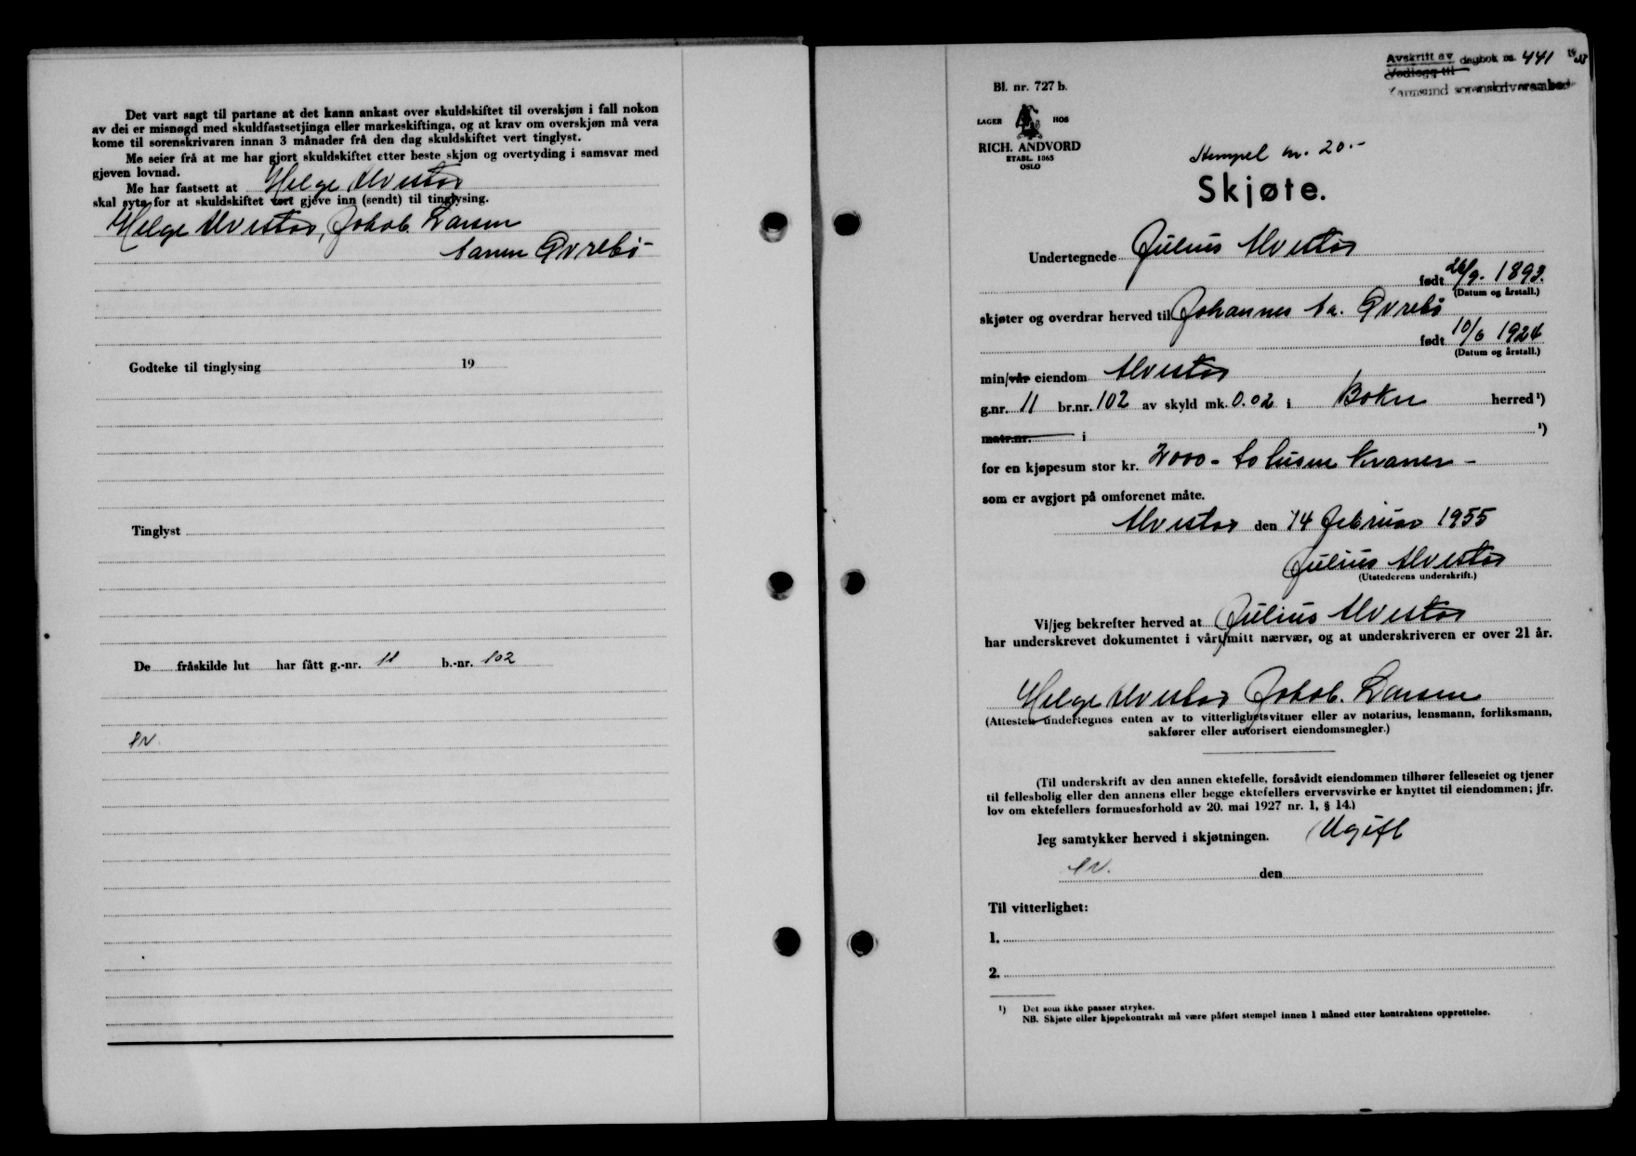 Det vart sagt til partane at det kann ankast over skuldskiftet til overskjøn i fall nokon
av dei er misnøgd med skuldfastsetjinga eller markeskiftinga, og at krav om overskjøn må vera
kome til sorenskrivaren innan 3 månader frå den dag skuldskiftet vert tinglyst.
Me seier frå at me har gjort skuldskiftet etter beste skjøn og overtyding i samsvar med
gjeven lovnad.
Me har fastsett at Helge Alvestad
skal syta for at skuldskiftet vert gjeve inn (sendt) til tinglysing.
Helge Alvestad, Jakob Larsen
Øvrebø
Godteke til tinglysing 19
Tinglyst
De fråskilde lut har fått g.-nr. 11 b.-nr. 102
Avskrift av dagbok nr. 441
Vedlegg til
Karmsund sorenskriverembed
Bl. nr. 727 b.
LAGER HOS
RICH. ANDVORD
ETABL. 1865
OSLO
Stempel kr. 20.-
Skjøte.
Undertegnede Julius Alvestad
født 26/9. 1893.
(Datum og årstall.)
skjøter og overdrar herved til Johannes Øvrebø
født 10/6 1924
(Datum og årstall.)
min/vår eiendom Alvestad
g.nr. 11 br.nr. 102 av skyld mk. 0.02 i Bokn herred ¹)
matr.nr. i ¹)
for en kjøpesum stor kr. 2000 - to tusen kroner -
som er avgjort på omforenet måte.
Alvestad den 14 februar 1955
Julius Alvestad
(Utstederens underskrift.)
Vi/jeg bekrefter herved at Julius Alvestad
har underskrevet dokumentet i vårt/mitt nærvær, og at underskriveren er over 21 år.
Helge Alvestad Jakob. Larsen
(Attesten undertegnes enten av to vitterlighetsvitner eller av notarius, lensmann, forliksmann,
sakfører eller autorisert eiendomsmegler.)
(Til underskrift av den annen ektefelle, forsåvidt eiendommen tilhører felleseiet og tjener
til fellesbolig eller den annens eller begge ektefellers ervervsvirke er knyttet til eiendommen; jfr.
lov om ektefellers formuesforhold av 20. mai 1927 nr. 1, § 14.)
Jeg samtykker herved i skjøtningen. Ugift
den
Til vitterlighet:
1.
2.
¹) Det som ikke passer strykes.
NB. Skjøte eller kjøpekontrakt må være påført stempel innen 1 måned etter kontraktens opprettelse.